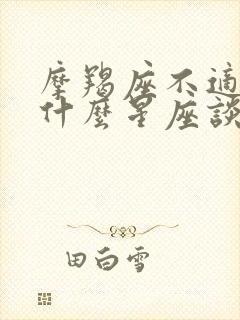 摩羯座不適
什麼星座談
田白雪